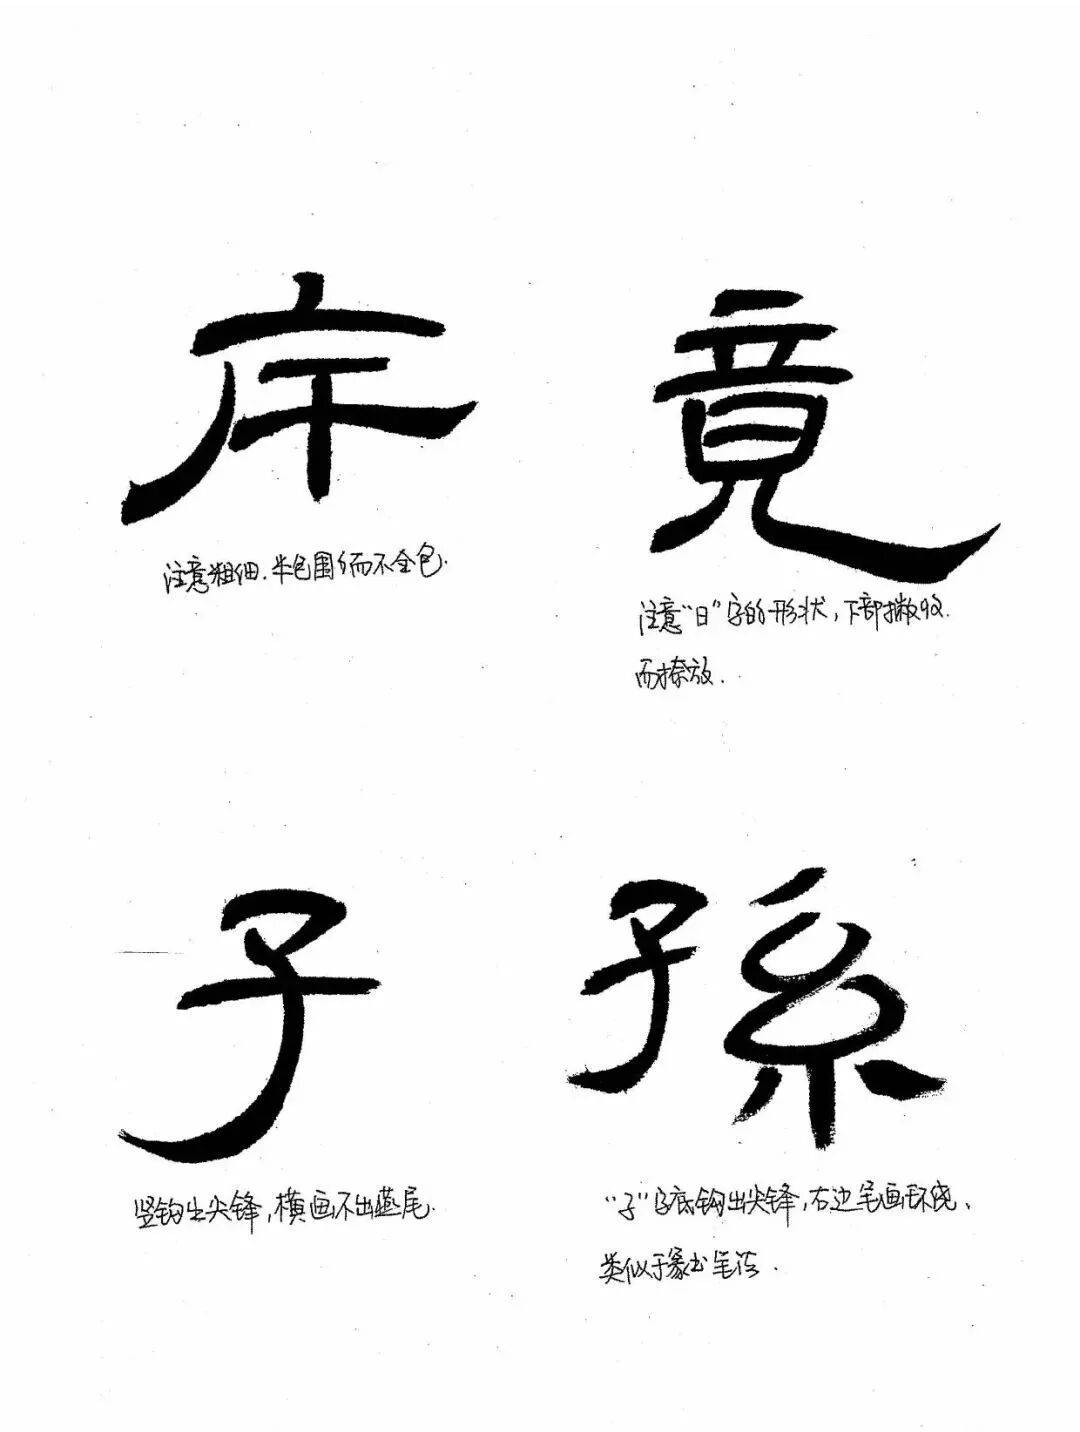 斥 竟
注意粗细.半包围而不全包.
注意“日”字的形状,下部撇收.
而捺放.
子 孫
竖钩出尖锋,横画不出燕尾.
“子”字底钩出尖锋,右边笔画环绕、
类似于篆书笔法.